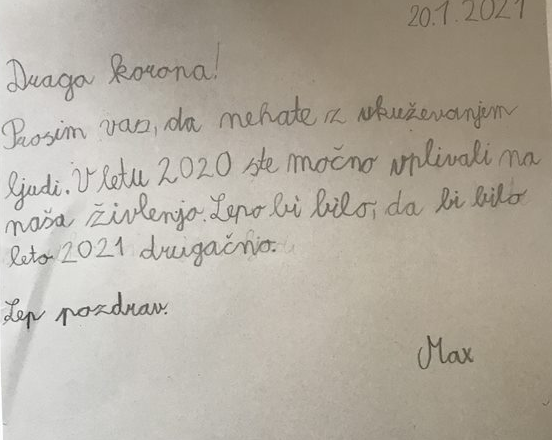 20.1.2021
Draga korona!
Prosim vas, da nehate z okuževanjem
ljudi. V letu 2020 ste močno vplivali na
naša življenja. Lepo bi bilo, da bi bilo
leto 2021 drugačno.
Lep pozdrav.
Max